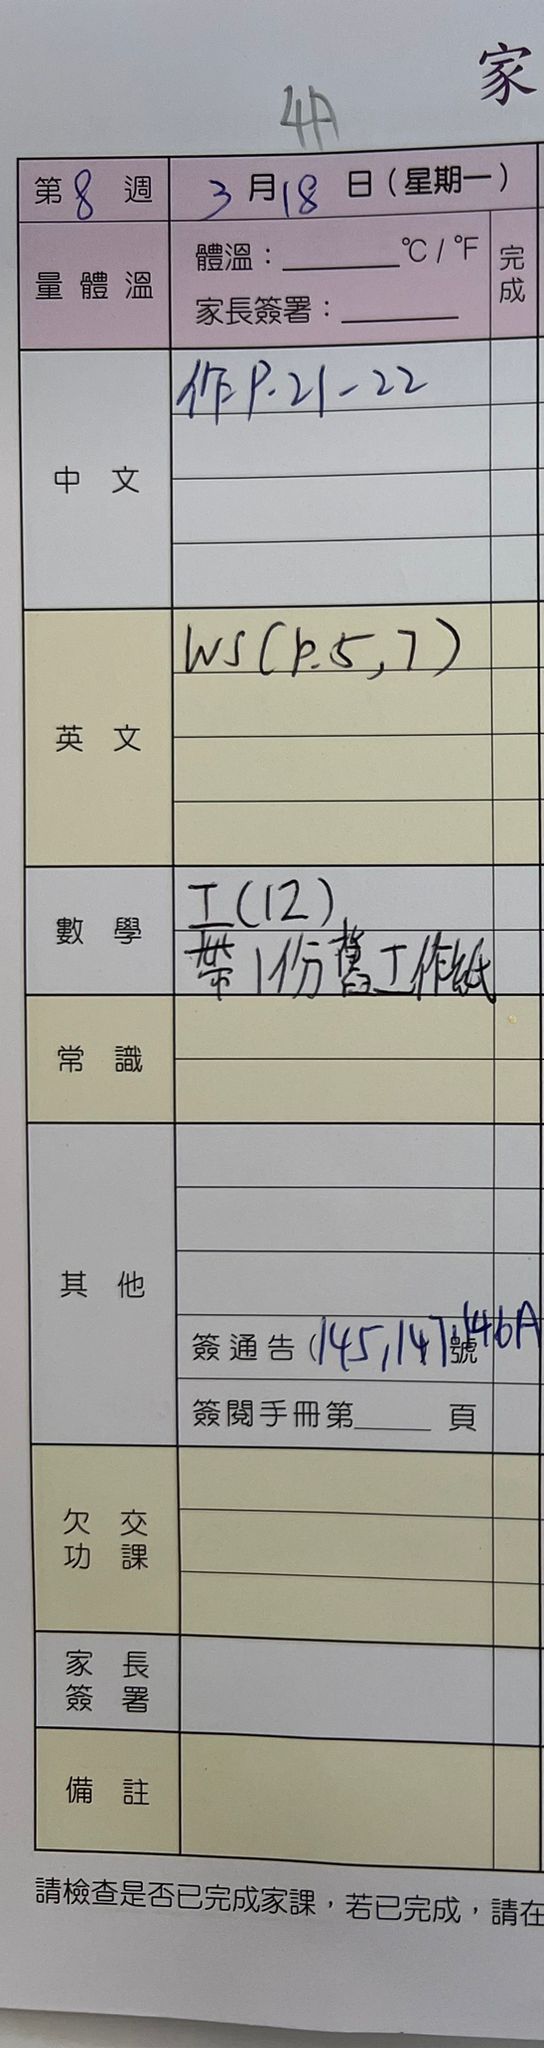 家
4A
第8週 3月18日(星期一)
量體溫 體溫:______℃/℉ 完成
家長簽署:______
中文 作P.21-22
英文 WS(P.5,7)
數學 工(12)
帶1份舊工作紙
常識
其他
簽通告(145,147,146A號
簽閱手冊第____頁
欠交功課
家長簽署
備註
請檢查是否已完成家課,若已完成,請在